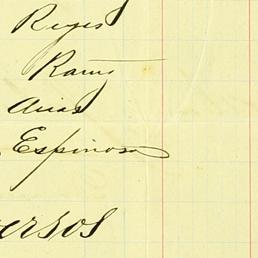 Reyes
Rams
Arias
Espinosa
ersos